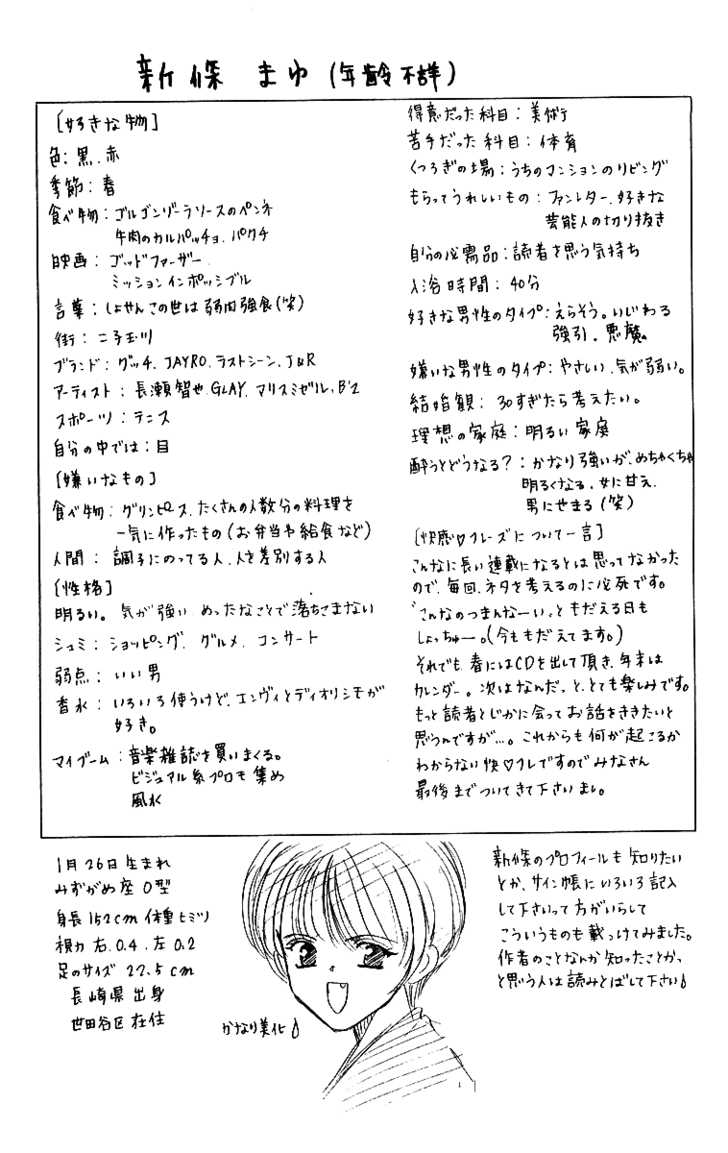 新條 まゆ (年齢不詳)
[好きな物]
色：黒、赤
季節：春
食べ物：ゴルゴンゾーラソースのペンネ
牛肉のカルパッチョ、パクチ
映画：ゴッドファーザー
ミッションインポッシブル
言葉：しょせんこの世は弱肉強食(笑)
街：二子玉川
ブランド：グッチ、JAYRO、ラストシーン、J&R
アーティスト：長瀬智也、GLAY、マリスミゼル、B'z
スポーツ：テニス
自分の中では：目
[嫌いなもの]
食べ物：グリンピース、たくさんの人数分の料理を
一気に作ったもの(お弁当や給食など)
人間：調子にのってる人、人を差別する人
[性格]
明るい。気が強い めったなことで落ちこまない
シュミ：ショッピング、グルメ、コンサート
弱点：いい男
香水：いろいろ使うけど、エンヴィとディオリシモが
好き。
マイブーム：音楽雑誌を買いまくる。
ビジュアル系プロモ集め
風水
得意だった科目：美術
苦手だった科目：体育
くつろぎの場：うちのマンションのリビング
もらってうれしいもの：ファンレター、好きな
芸能人の切り抜き
自分の必需品：読者を思う気持ち
入浴時間：40分
好きな男性のタイプ：えらそう。いじわる
強引、悪魔。
嫌いな男性のタイプ：やさしい、気が弱い。
結婚観：30すぎたら考えたい。
理想の家庭：明るい家庭
酔うとどうなる？：かなり強いが、めちゃくちゃ
明るくなる。女に甘え、
男にせまる(笑)
[快感♡フレーズについて一言]
こんなに長い連載になるとは思ってなかった
ので、毎回、ネタを考えるのに必死です。
“こんなのつまんなーい。”ともだえる日も
しょっちゅー。(今ももだえてます。)
それでも春にはCDを出して頂き、年末は
カレンダー。次はなんだっ と、とても楽しみです。
もっと読者とじかに会ってお話をききたいと
思うんですが…。これからも何が起こるか
わからない快♡フレですのでみなさん
最後までついてきて下さいまし。
1月26日生まれ
みずがめ座 O型
身長152cm 体重ヒミツ
視力 右、0.4、左0.2
足のサイズ 22.5cm
長崎県出身
世田谷区在住
かなり美化♪
新條のプロフィールも知りたい
とか、サイン帳にいろいろ記入
して下さいって方がいらして
こういうものも載っけてみました。
作者のことなんか知ったことかっ
と思う人は読みとばして下さい♪